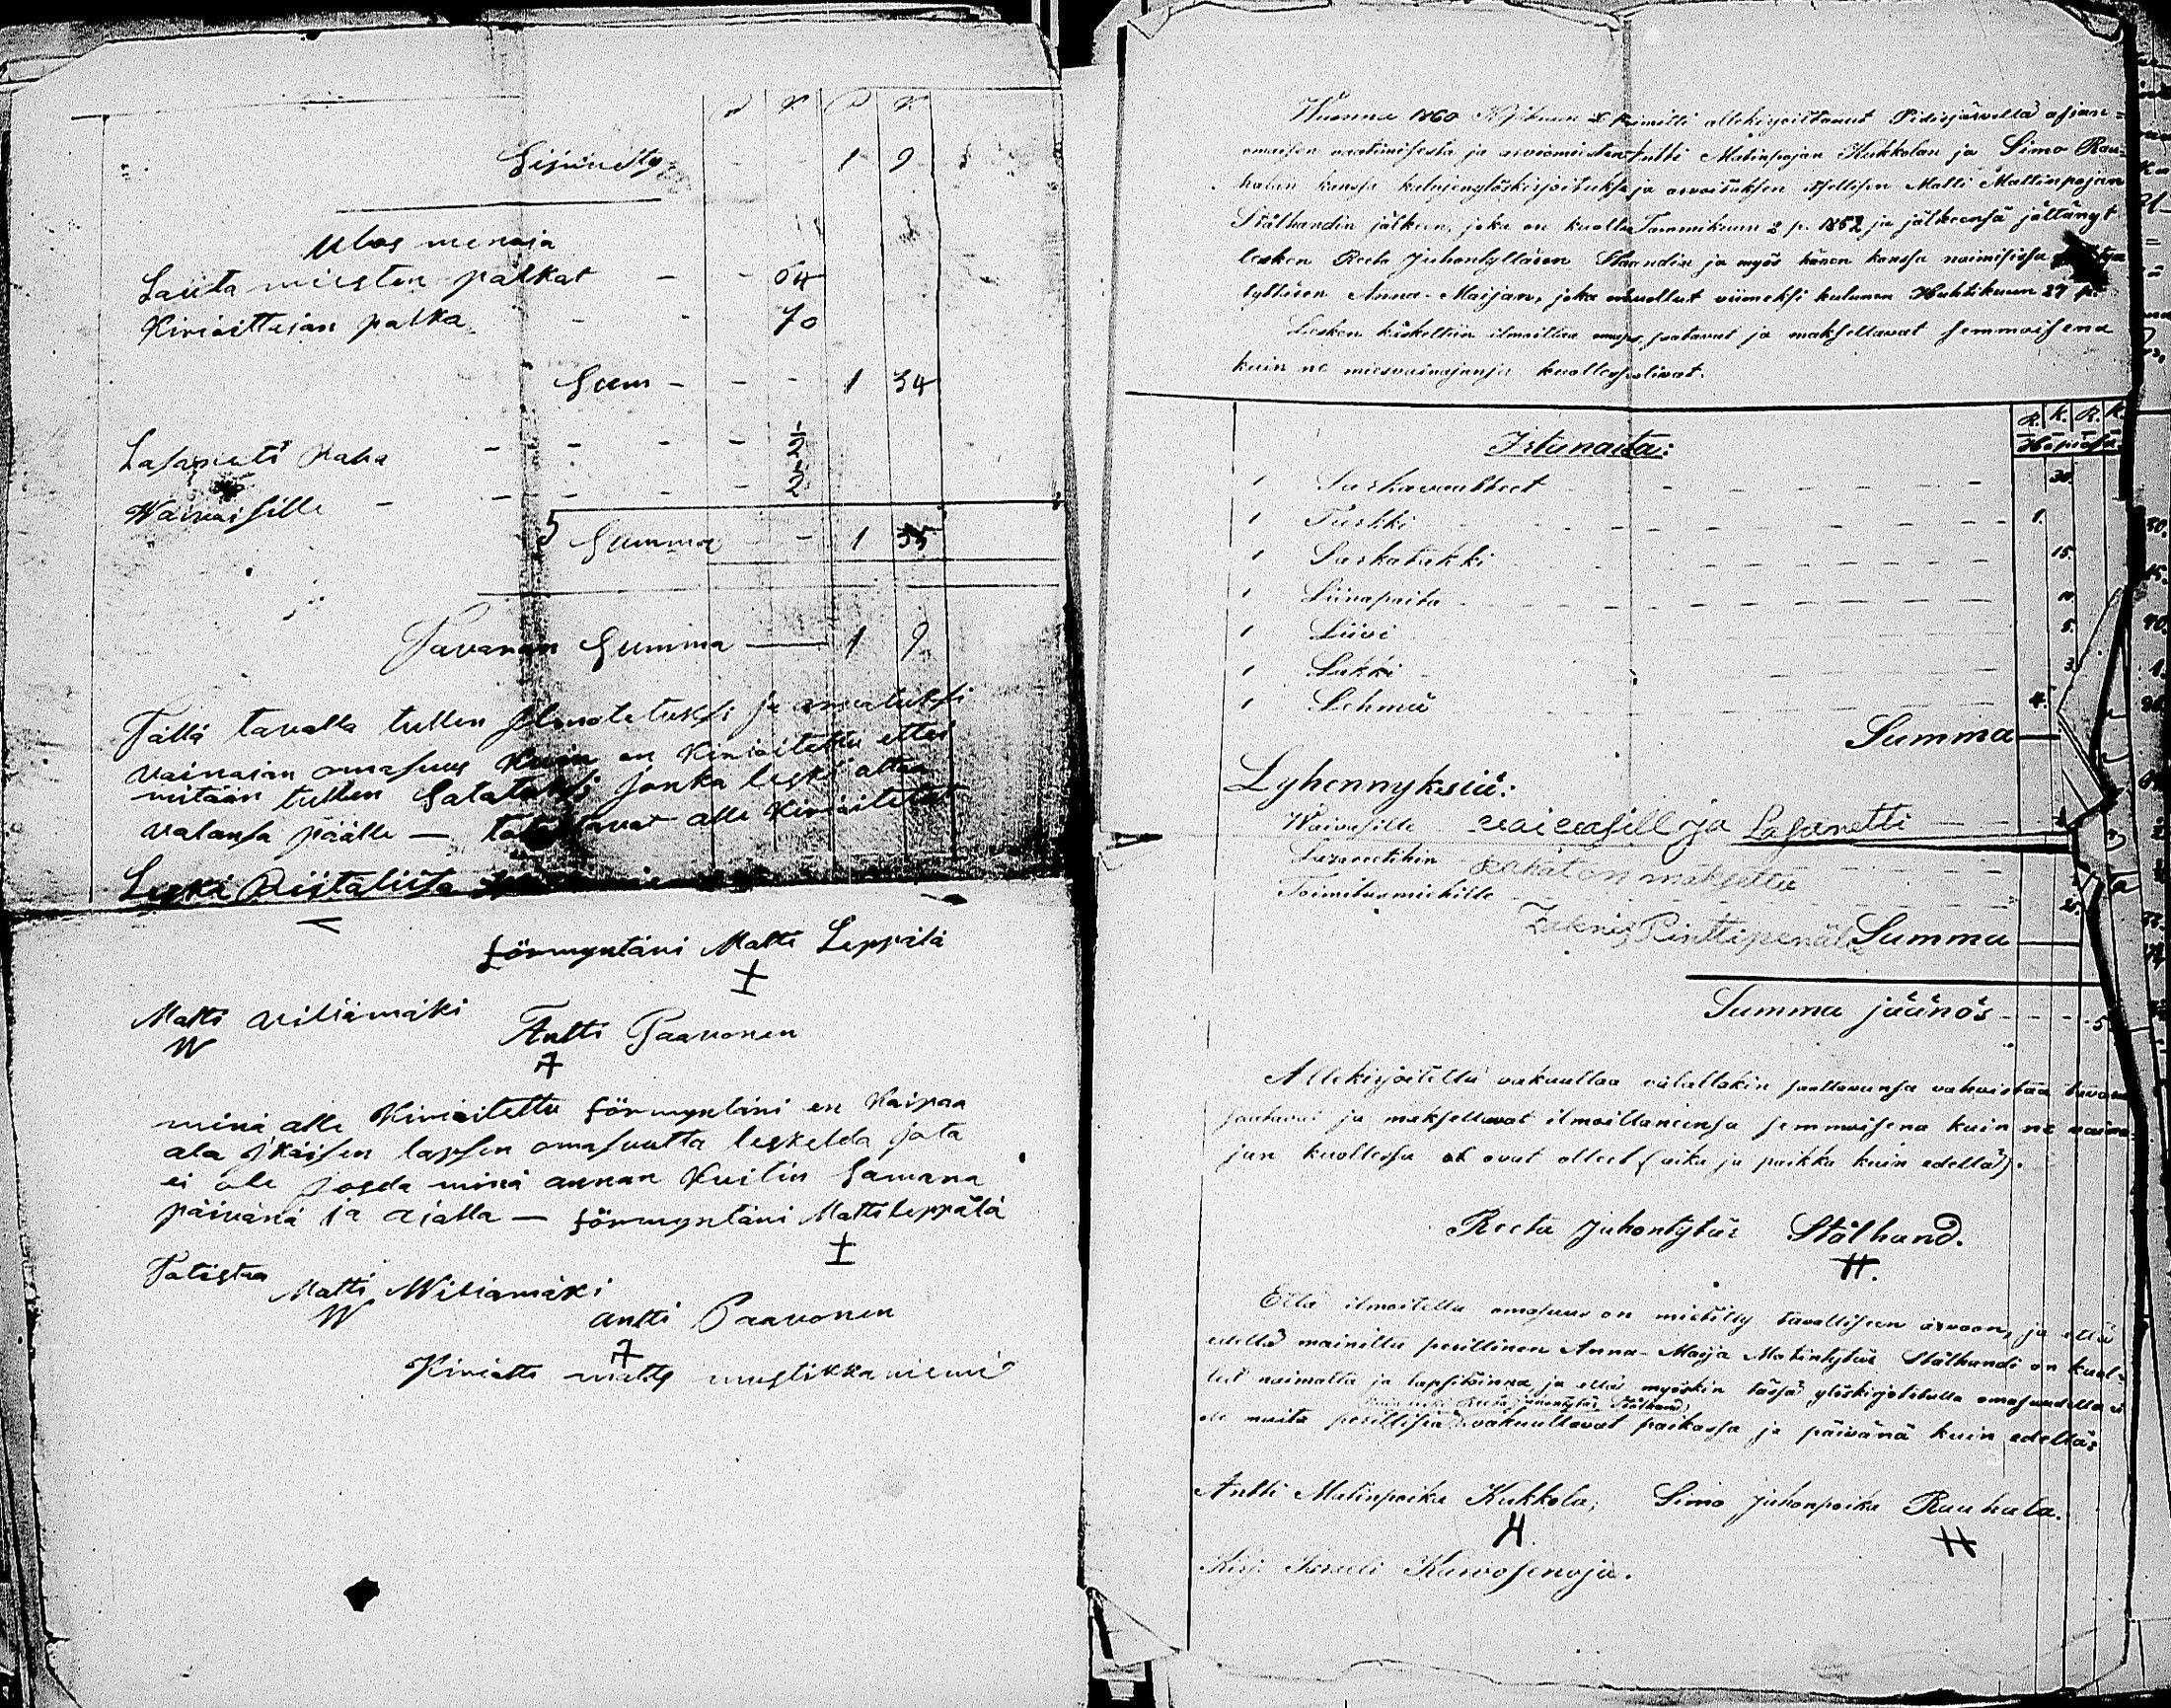 R K R K
Siirretty - - 1 9
Ulos menoja
Lautamiesten palkat - - 64
Kirioittajan palka - - 70
Sum - - - 1 34
Lasareti Raha - - - - ½
Waivaisille - - - - - - ½
Summa - - 1 35
Tavaran Summa — 1 9
Tällä tavalla tullen ilmotetuksi ja arvatuksi
vainajan omasuus Kuin on Kirioitettu ettei
mitään tullen Salatuksi Jonka leski ottaa
valansa päälle — alle Kirioitetut
Leski Riistaliisa
förmyntäni Matti Leppälä
Matti Wiliämäki
W
Antti Paavonen
minä alle Kirioitettu förmyntäni en Kaipaa
ala jkäisen lapsen omasuutta leskelda jota
ei ole Josda minä annan Kuitin Samana
päivänä ja ajalla — förmyntäni Matti Leppälä
Totistaa
Matti Wiliamäki
W
antti Paavonen
Kirioitti matts mustikkaniemi
Wuonna 1860 allekirjoittanut Pidisjärvellä asian=
omaisen vaatimisesta ja arviomiesten Antti Matinpojan Kukkolan ja Simo Rau=
halan kanssa kalujenylöskirjoituksen ja arvoituksen itsellisen Matti Mattinpojan
Stålhandin jälkeen, joka on kuollut Tammikuun 2 p. 1852 ja jälkeensä jättänyt
lesken Reeta Juhontyttären Stålhandin ja myös hänen kanssa naimisissa
tyttären Anna-Maijan, joka on kuollut viimeksi kuluneen Huhtikuun 27 p.
Lesken käskettiin ilmoittaa omaisuus, saatavat ja maksettavat semmoisena
kuin ne miesvainajansa kuollessa olivat.
R. K. R. K.
Hopiassa.
Irtunaita:
1 Sarkavaatteet - - - 30.
1 Turkki - - - 1.
1 Sarkatakki - - - 15.
1 Liinapaita - - - 10.
1 Liivi - - - 5.
1 Lakki - - - 3.
1 Lehmä - - - 4.
Summa —
Lyhennyksiä:
Waivasille vaivasill ja Lasanetti
Lazarettihin rahat on maksettu
Toimitusmiehille - - - 25.
Zaknis Pinttiperälä Summa —
Summa jäänös - - - - 5
Allekirjoitettu vakuuttaa valallakin saattavansa vahvistaa tavaran
saatavat ja maksettavat ilmoittaneensa semmoisena kuin ne vaina=
jan kuollessa ovat olleet (aika ja paikka kuin edellä).
Reeta Juhontytär Stålhand.
Että ilmoitettu omaisuus on mietitty tavalliseen arvoon, ja että
edellä mainittu perillinen Anna-Maija Matintytär Stålhandi on kuol=
lut naimatta ja lapsitoinna ja että myöskin tässä ylöskirjoitetulla omaisuudella ei
kuin leski Reeta Juhontytär Stålhand
ole muita perillisiä vakuuttavat paikassa ja päivänä kuin edellä:
Antti Matinpoika Kukkola; Simo Juhonpoika Rauhala.
Kirj. Israeli Kaivosenoja.